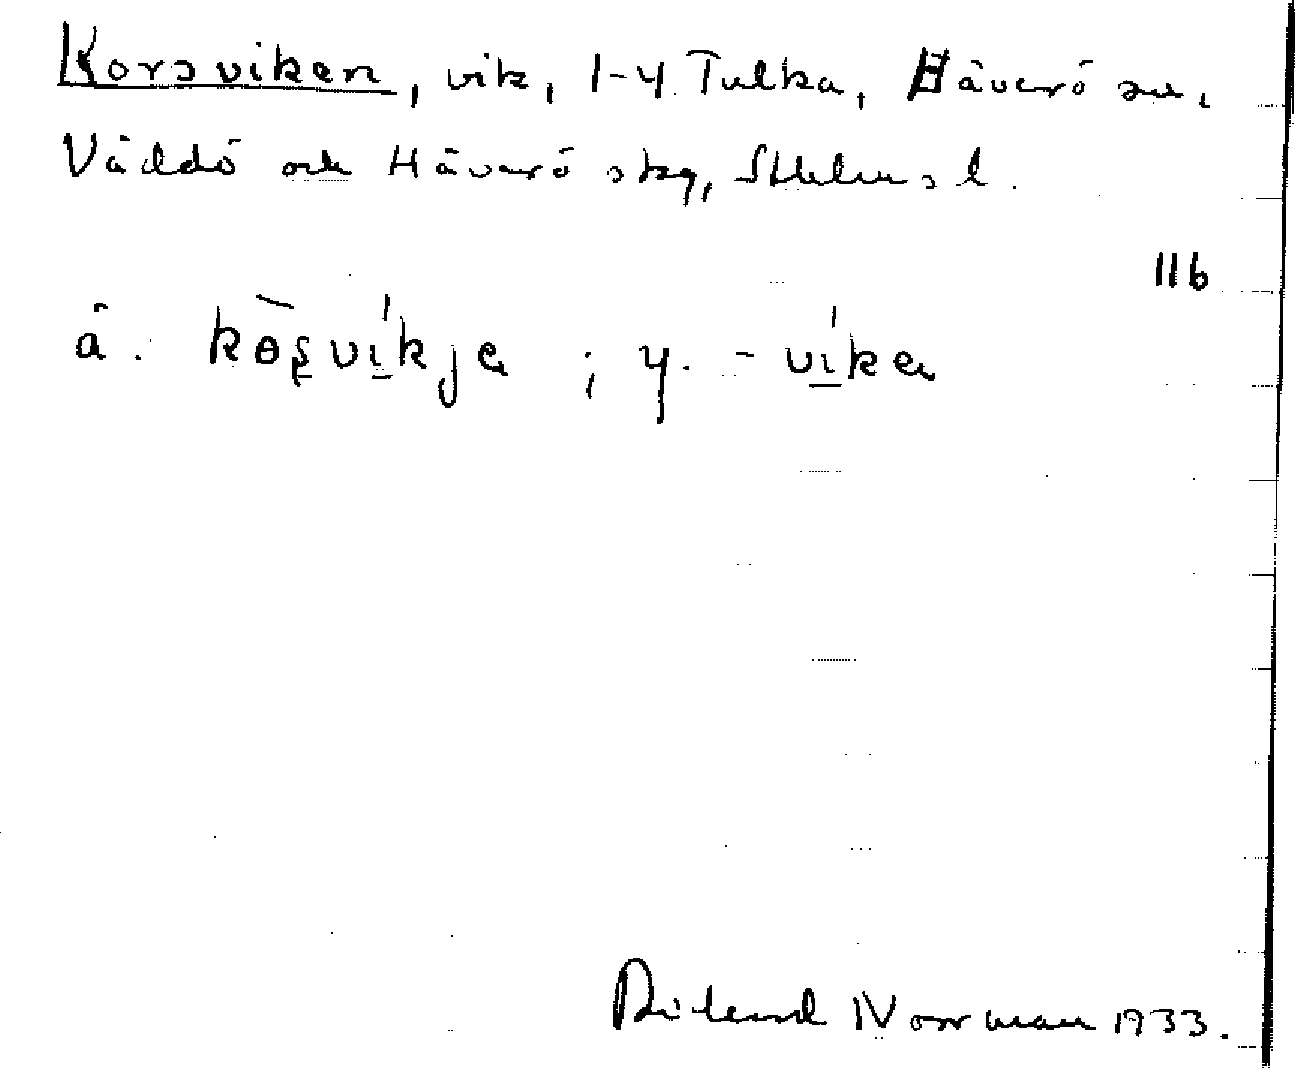 Korsviken, vik, 1-4 Tulka, Häverö sn,
Väddö och Häverö skg, Sthlms l.
116
ä. kɵ̀ʂvíkjɐ ; y. -víkɐ
Norrman 1933.